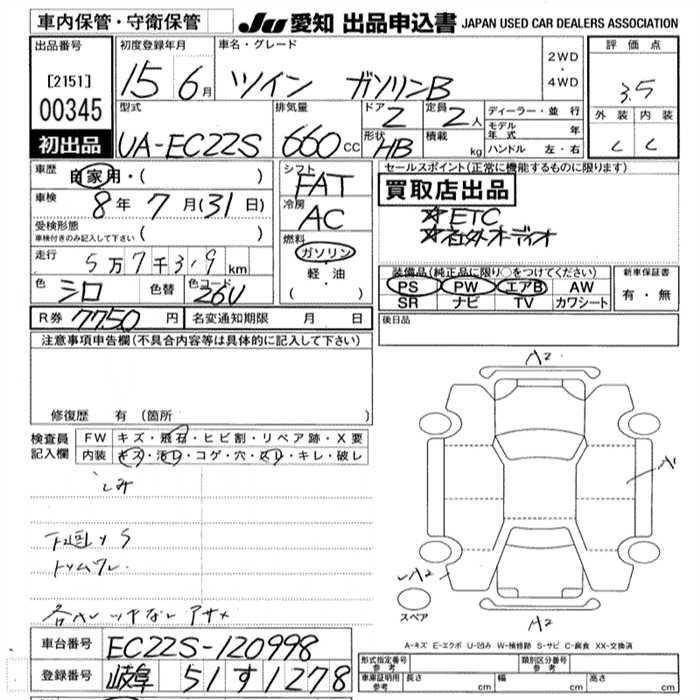 車内保管・守衛保管 JU 愛知 出品申込書 JAPAN USED CAR DEALERS ASSOCIATION
出品番号 初度登録年月 車名・グレード 評価点
[2151] 15 6月 ツイン ガソリンB 2WD・4WD 3.5
00345 型式 排気量 ドア 定員 ディーラー・並行 外装 内装
初出品 UA-EC22S 660cc 2 2人 モデル年式 年 C C
形状 HB 積載 kg ハンドル 左・右
車歴 自家用・( ) シフト FAT セールスポイント(正常に機能するものに限ります)
車検 8年7月(31日) 冷房 AC 買取店出品
受検形態 ( ) ☆ETC
車検付きのみ記入して下さい 燃料 ☆社外オーディオ
走行 5万7千3.9km ガソリン
軽・油
( )
色 シロ 色替 色コード 26U
装備品(純正品に限り○をつけてください) 新車保証書
PS PW エアB AW 有・無
SR ナビ TV カワシート
R券 7750円 名変通知期限 月 日 後日品
注意事項申告欄(不具合内容等は具体的に記入して下さい)
修復歴 有 (箇所 )
検査員記入欄 FW キズ・飛石・ヒビ割・リペア跡・X要
内装 キズ・汚レ・コゲ・穴・スレ・キレ・破レ
シミ
下廻りS
A2
A1
A2
スペア
A2
A-キズ E-エクボ U-凹み W-補修跡 S-サビ C-腐食 XX-交換済
車台番号 EC22S-120998
登録番号 岐阜 51す1278
形式指定番号 参考 類別区分番号 参考
車庫証明用 参考 長さ cm 幅 cm 高さ cm